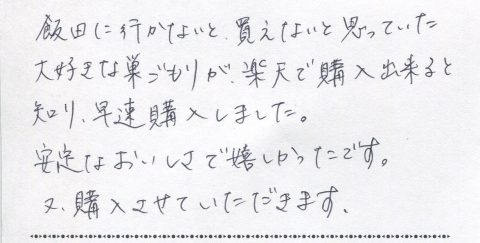 飯田に行かないと、買えないと思っていた
大好きな巣ごもりが、楽天で購入出来ると
知り、早速購入しました。
安定なおいしさで嬉しかったです。
又、購入させていただきます、